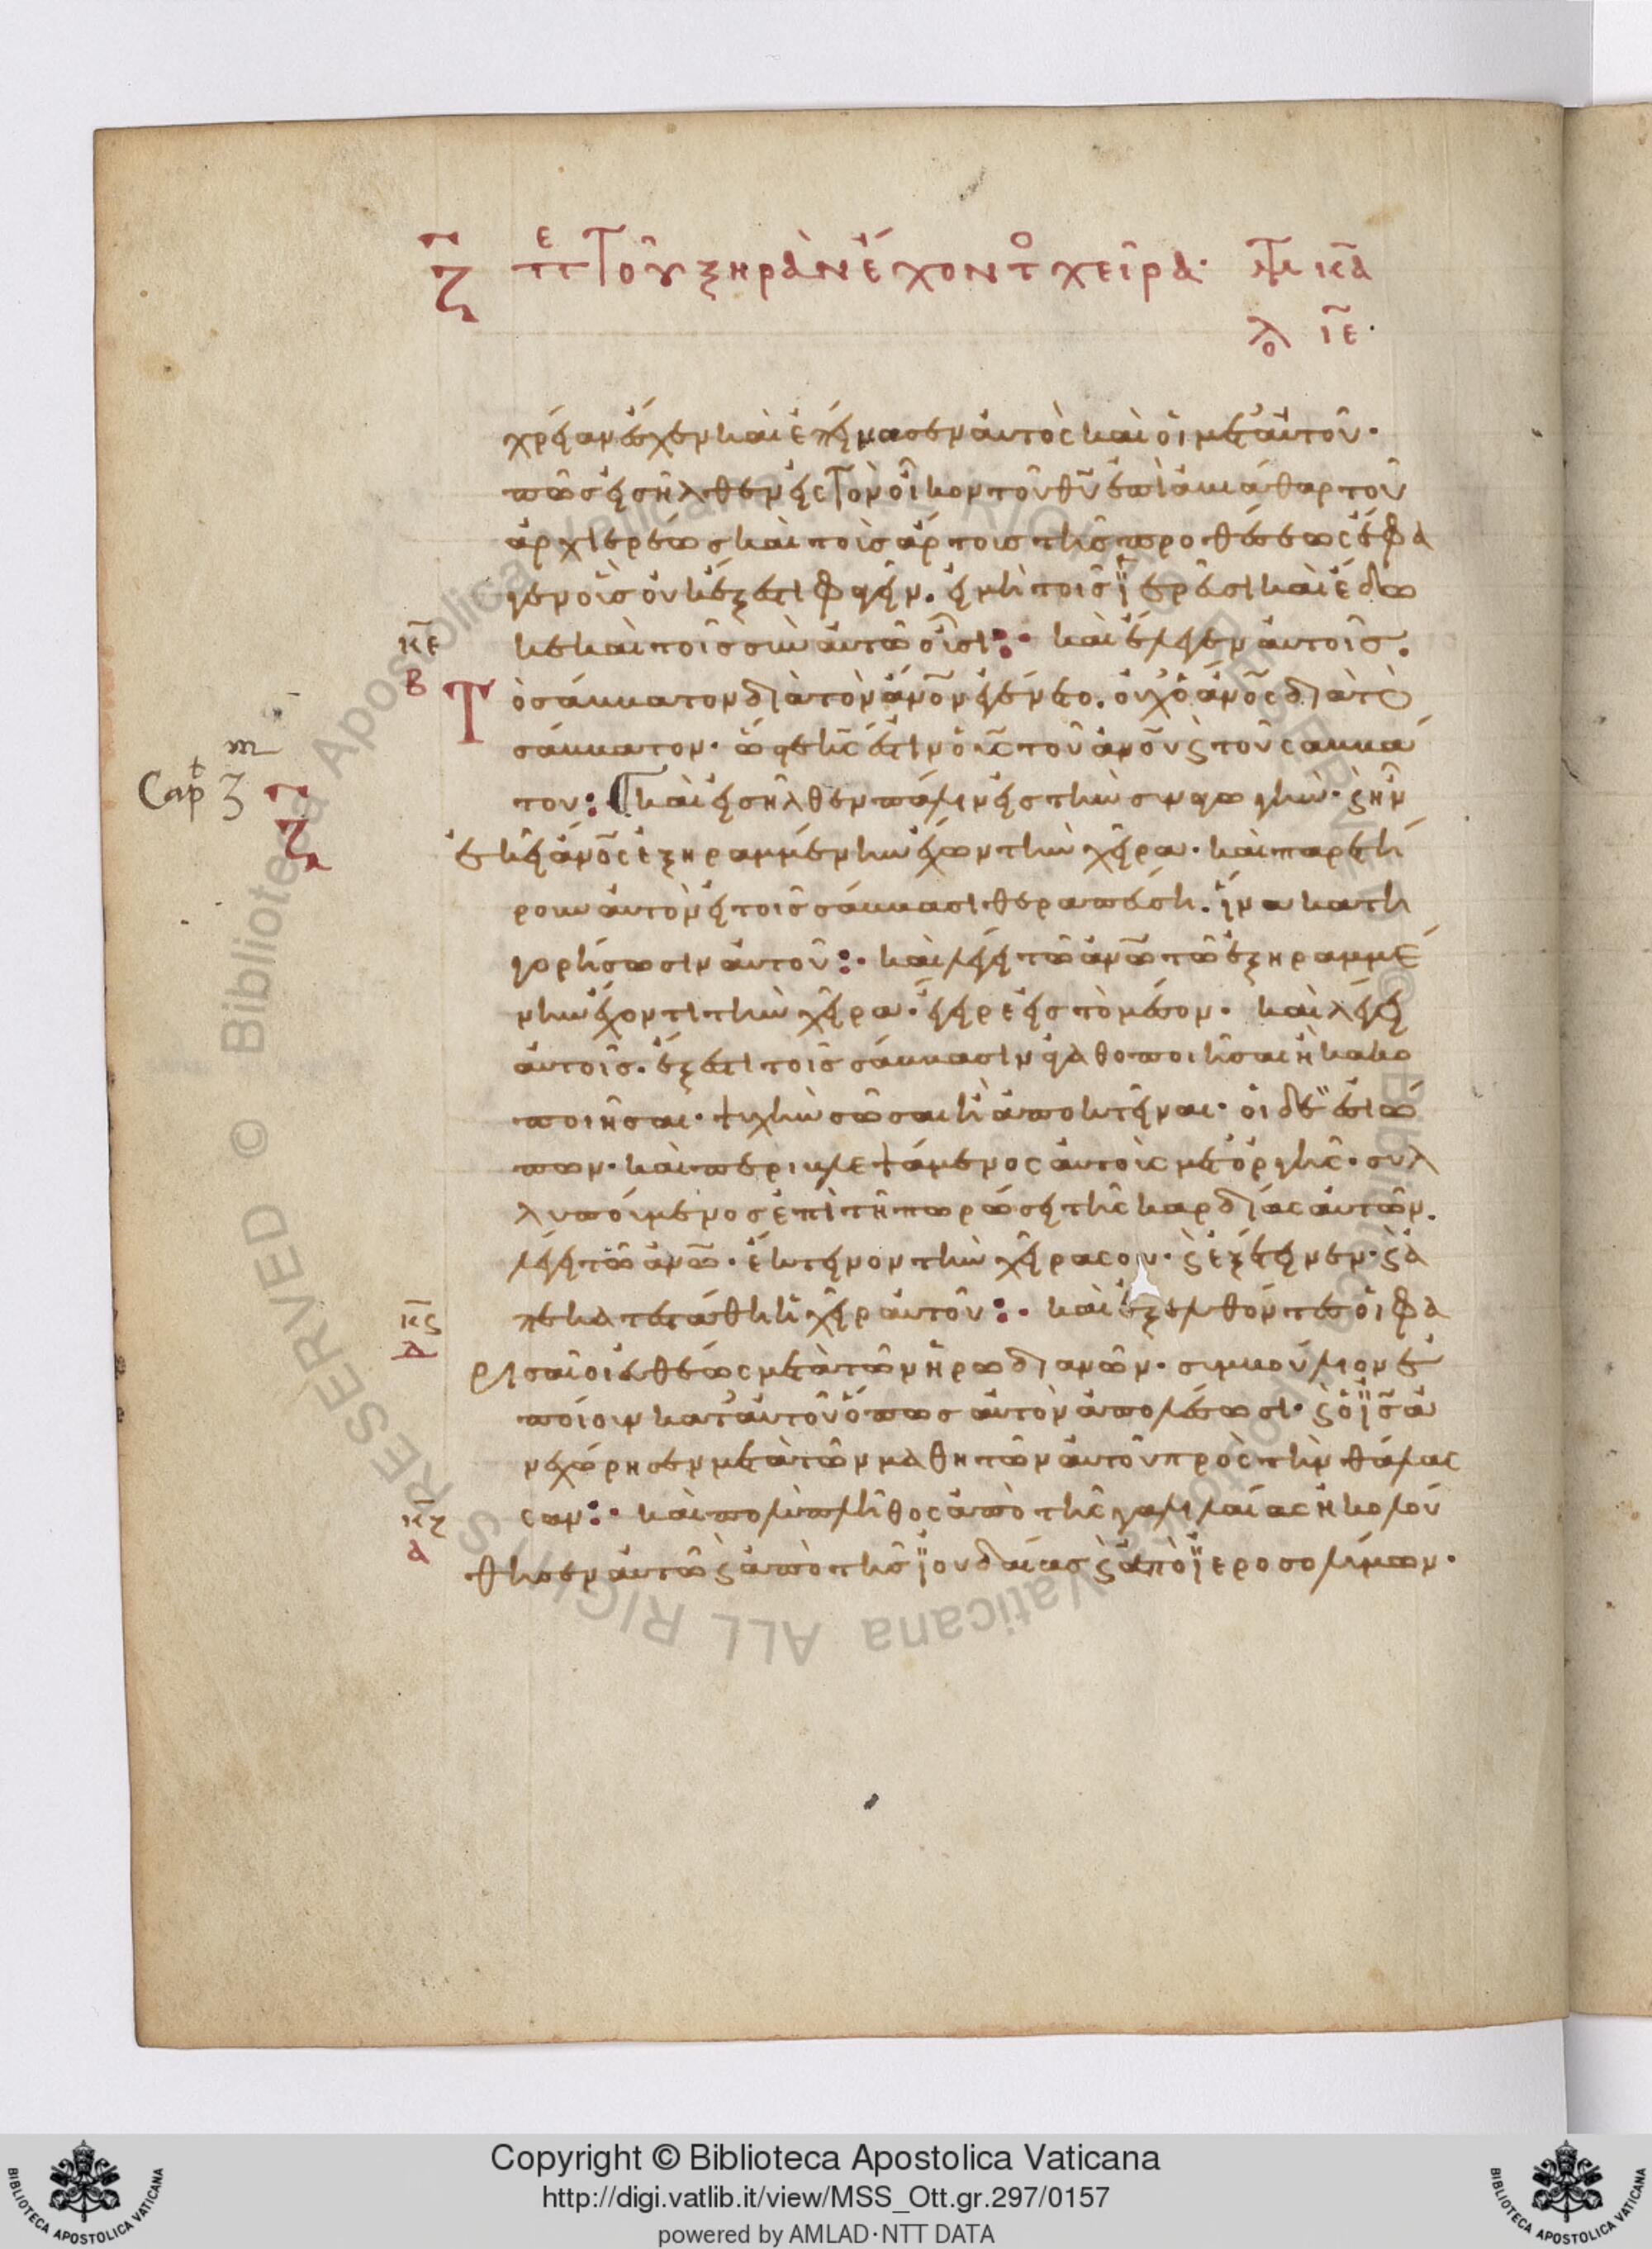 ζ πε τοῦ ξηρὰν ἔχοντο χεῖρα· κα
ιε·
χρείαν ἔσχεν καὶ ἐπείνασεν αὐτὸς καὶ οἱ μετ' αὐτοῦ·
πῶς εἰσῆλθεν εἰς τὸν οἶκον τοῦ θυ ἐπὶ ἀβιάθαρ τοῦ
ἀρχιερέως καὶ τοὺς ἄρτους τῆς προθέσεως ἔφα
γεν οἷς οὐκ ἔξεστι φαγεῖν. εἰ μὴ τοῖς ϊερεῦσι καὶ ἔδω
κε κε καὶ τοῖς σὺν αὐτῶ οὖσι: · καὶ ἔλεγεν αὐτοῖς.
β Τὸ σάββατον διὰ τὸν ἄνον ἐγένετο. οὐχ' ὁ ἄνος διὰ τὸ
σάββατον· ὥστε κς ἐστιν ὁ υς τοῦ ἀνου ϛ τοῦ σαββά
Cap^t 3^m ζ του: καὶ εἰσῆλθεν πάλιν εἰς τὴν συναγωγήν· ϛ ἦν
ἐκεῖ ἄνος ἐξηραμμένην ἔχων τὴν χεῖρα· καὶ παρετή
ρουν αὐτὸν εἰ τοῖς σάββασι θεραπεύσει. ἵνα κατη
γορήσωσιν αὐτοῦ: · καὶ λέγει τῶ ἀνω τῶ ἐξηραμμέ
νην ἔχοντι τὴν χεῖρα· ἔγειρε εἰς τὸ μέσον· καὶ λέγει
αὐτοῖς. ἔξεστι τοῖς σάββασιν ἀγαθοποιῆσαι ἢ κακο
ποιῆσαι· ψυχὴν σῶσαι ἢ ἀποκτεῖναι· οἱ δὲ ἐσιώ
πων· καὶ περιβλεψάμενος αὐτοὺς μετ' ὀργῆς· συλ
λυπούμενος ἐπὶ τῆ πωρώσει τῆς καρδίας αὐτῶν.
λέγει τῶ ἀνω· ἔκτεινον τὴν χεῖρα σου· ϛ ἐξέτεινεν· ϛ ἀ
κϛ πεκατεστάθη ἡ χεὶρ αὐτοῦ: · καὶ ἐξελθόντες οἱ φα
δ ρισαῖοι εὐθέως μετὰ τῶν ἡρωδιανῶν· συμβούλιον ἐ
ποίουν κατ' αὐτοῦ ὅπως αὐτὸν ἀπολέσωσι· ϛ ὁ ϊς ἀ
νεχώρησεν μετὰ τῶν μαθητῶν αὐτοῦ πρὸς τὴν θάλας
κζ σαν: · καὶ πολὺ πλῆθος ἀπὸ τῆς γαλιλαίας ἠκολού
α θησεν αὐτῶ ϛ ἀπὸ τῆς ϊουδαίας ϛ ἀπὸ ϊεροσολύμων·
Copyright © Biblioteca Apostolica Vaticana
http://digi.vatlib.it/view/MSS_Ott.gr.297/0157
powered by AMLAD·NTT DATA